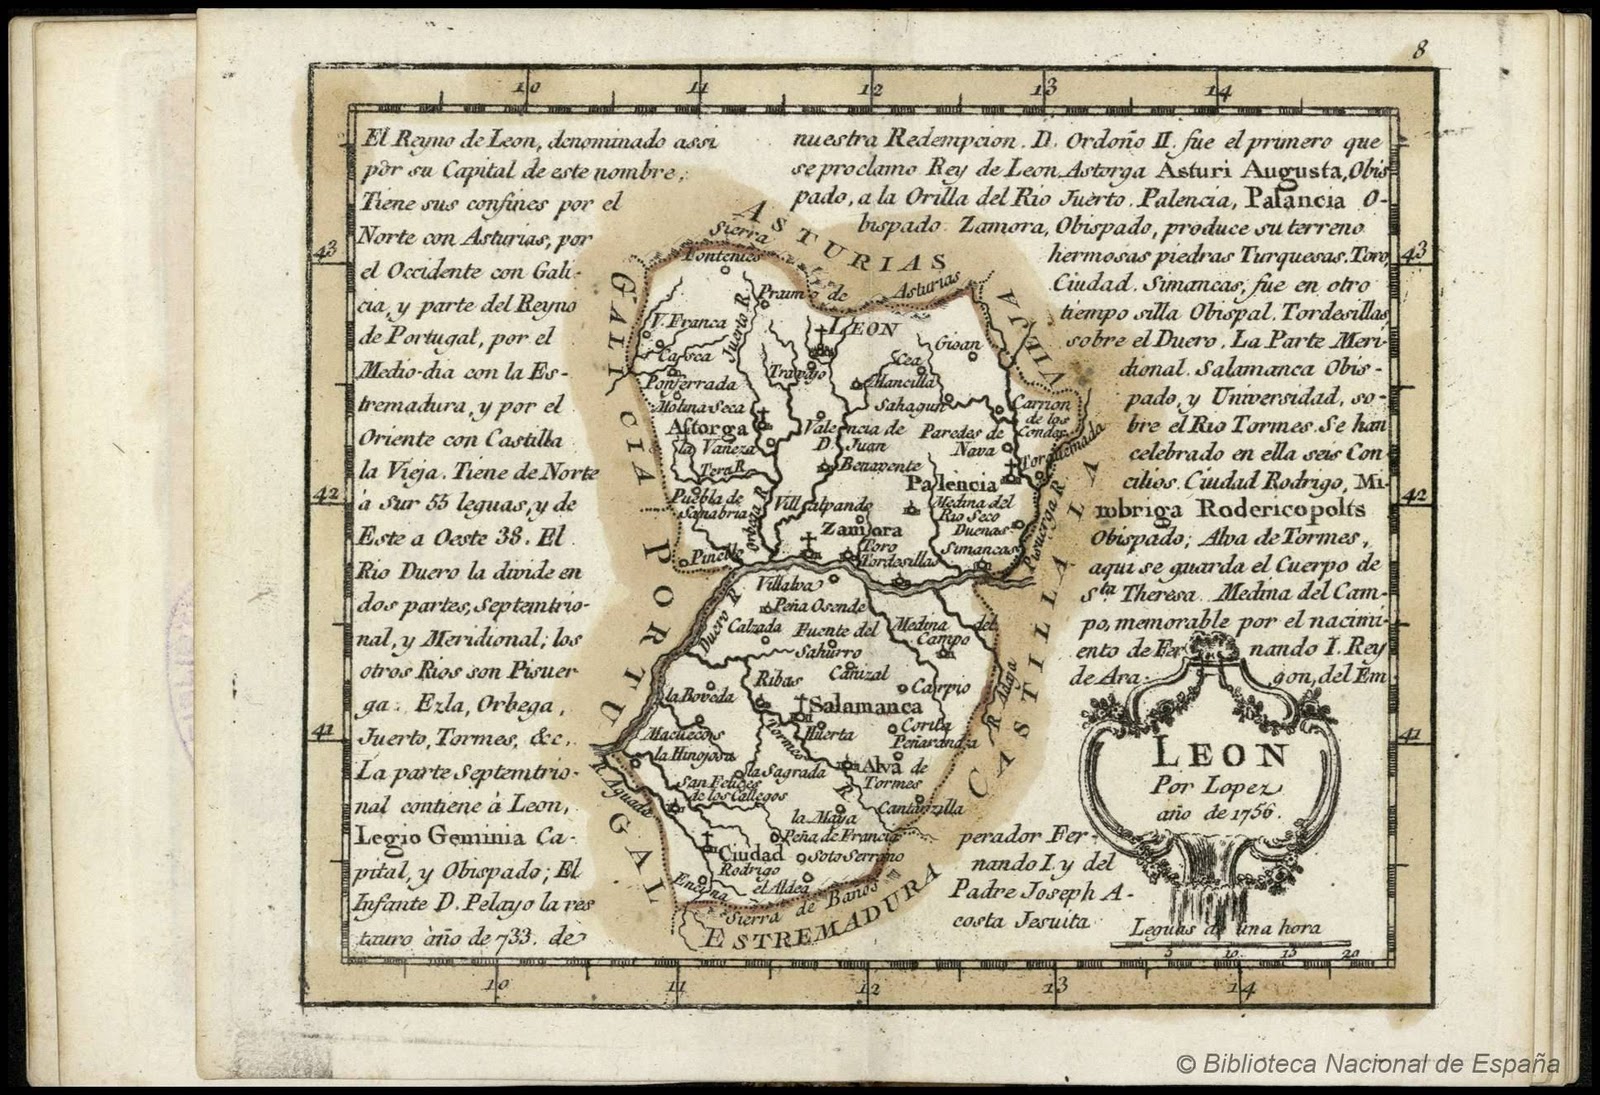 8
10 11 12 13 14
El Reyno de Leon, denominado assi
por su Capital de este nombre,
Tiene sus confines por el
Norte con Asturias, por
el Occidente con Gali-
cia, y parte del Reyno
de Portugal, por el
Medio-dia con la Es-
tremadura, y por el
Oriente con Castilla
la Vieja. Tiene de Norte
à Sur 55 leguas, y de
Este a Oeste 38. El
Rio Duero la divide en
dos partes, Septemtrio-
nal, y Meridional; los
otros Rios son Pisuer
ga. Ezla, Orbega,
Juerto, Tormes, &c.
La parte Septemtrio-
nal contiene à Leon,
Legio Geminia Ca-
pital, y Obispado; El
Infante D. Pelayo la res
tauro año de 733. de
nuestra Redempcion. D. Ordoño II. fue el primero que
se proclamo Rey de Leon. Astorga Asturi Augusta, Obis
pado, a la Orilla del Rio Juerto. Palencia, Palancia O-
bispado. Zamora, Obispado, produce su terreno
hermosas piedras Turquesas. Toro,
Ciudad. Simancas, fue en otro
tiempo silla Obispal. Tordesillas
sobre el Duero. La Parte Meri
dional. Salamanca Obis-
pado, y Universidad, so-
bre el Rio Tormes. Se han
celebrado en ella seis Con
cilios. Ciudad Rodrigo, Mi-
mbriga Rodericopolts
Obispado; Alva de Tormes,
aqui se guarda el Cuerpo de
Sta Theresa. Medina del Cam-
po, memorable por el nacimi-
ento de Fer nando I. Rey
de Ara- gon, del Em
perador Fer-
nando I. y del
Padre Joseph A-
costa Jesuita
LEON
Por Lopez
año de 1756.
Leguas de una hora
5 10 15 20
43 43
42 42
41 41
ASTURIAS
Sierra de Asturias
GALICIA
PORTUGAL
CASTILLA LA VIEJA
ESTREMADURA
Sierra de Baños
Fontenies
V. Franca
Juerto R.
LEON
Gioan
Cea
Mancilla
Ponferrada
Molina Seca
Sahagun
Carrion
de los
Condes
Astorga
la Vaneza
Valencia de
D. Juan
Paredes de
Nava
Torquemada
Tera R.
Benavente
Palencia
Puebla de
Sanabria
Orbega R.
Villalpando
Medina del
Rio Seco
Duenas
Pisuerga R.
Zamora
Toro
Tordesillas
Simancas
Villalva
Duero R.
Peña Osende
Calzada
Fuente del
Sahurro
Medina del
Campo
Cañizal
Ribas
Carpio
R. Adaja
la Boveda
Salamanca
Huerta
Peñaranda
la Hinojosa
Tormes R.
Alva de
Tormes
la Sagrada
San Felices
de los Gallegos
Cantarzilla
R. Aguada
la Maya
Peña de Francia
Ciudad
Rodrigo
Soto Serrano
el Aldea
© Biblioteca Nacional de España
10 11 12 13 14